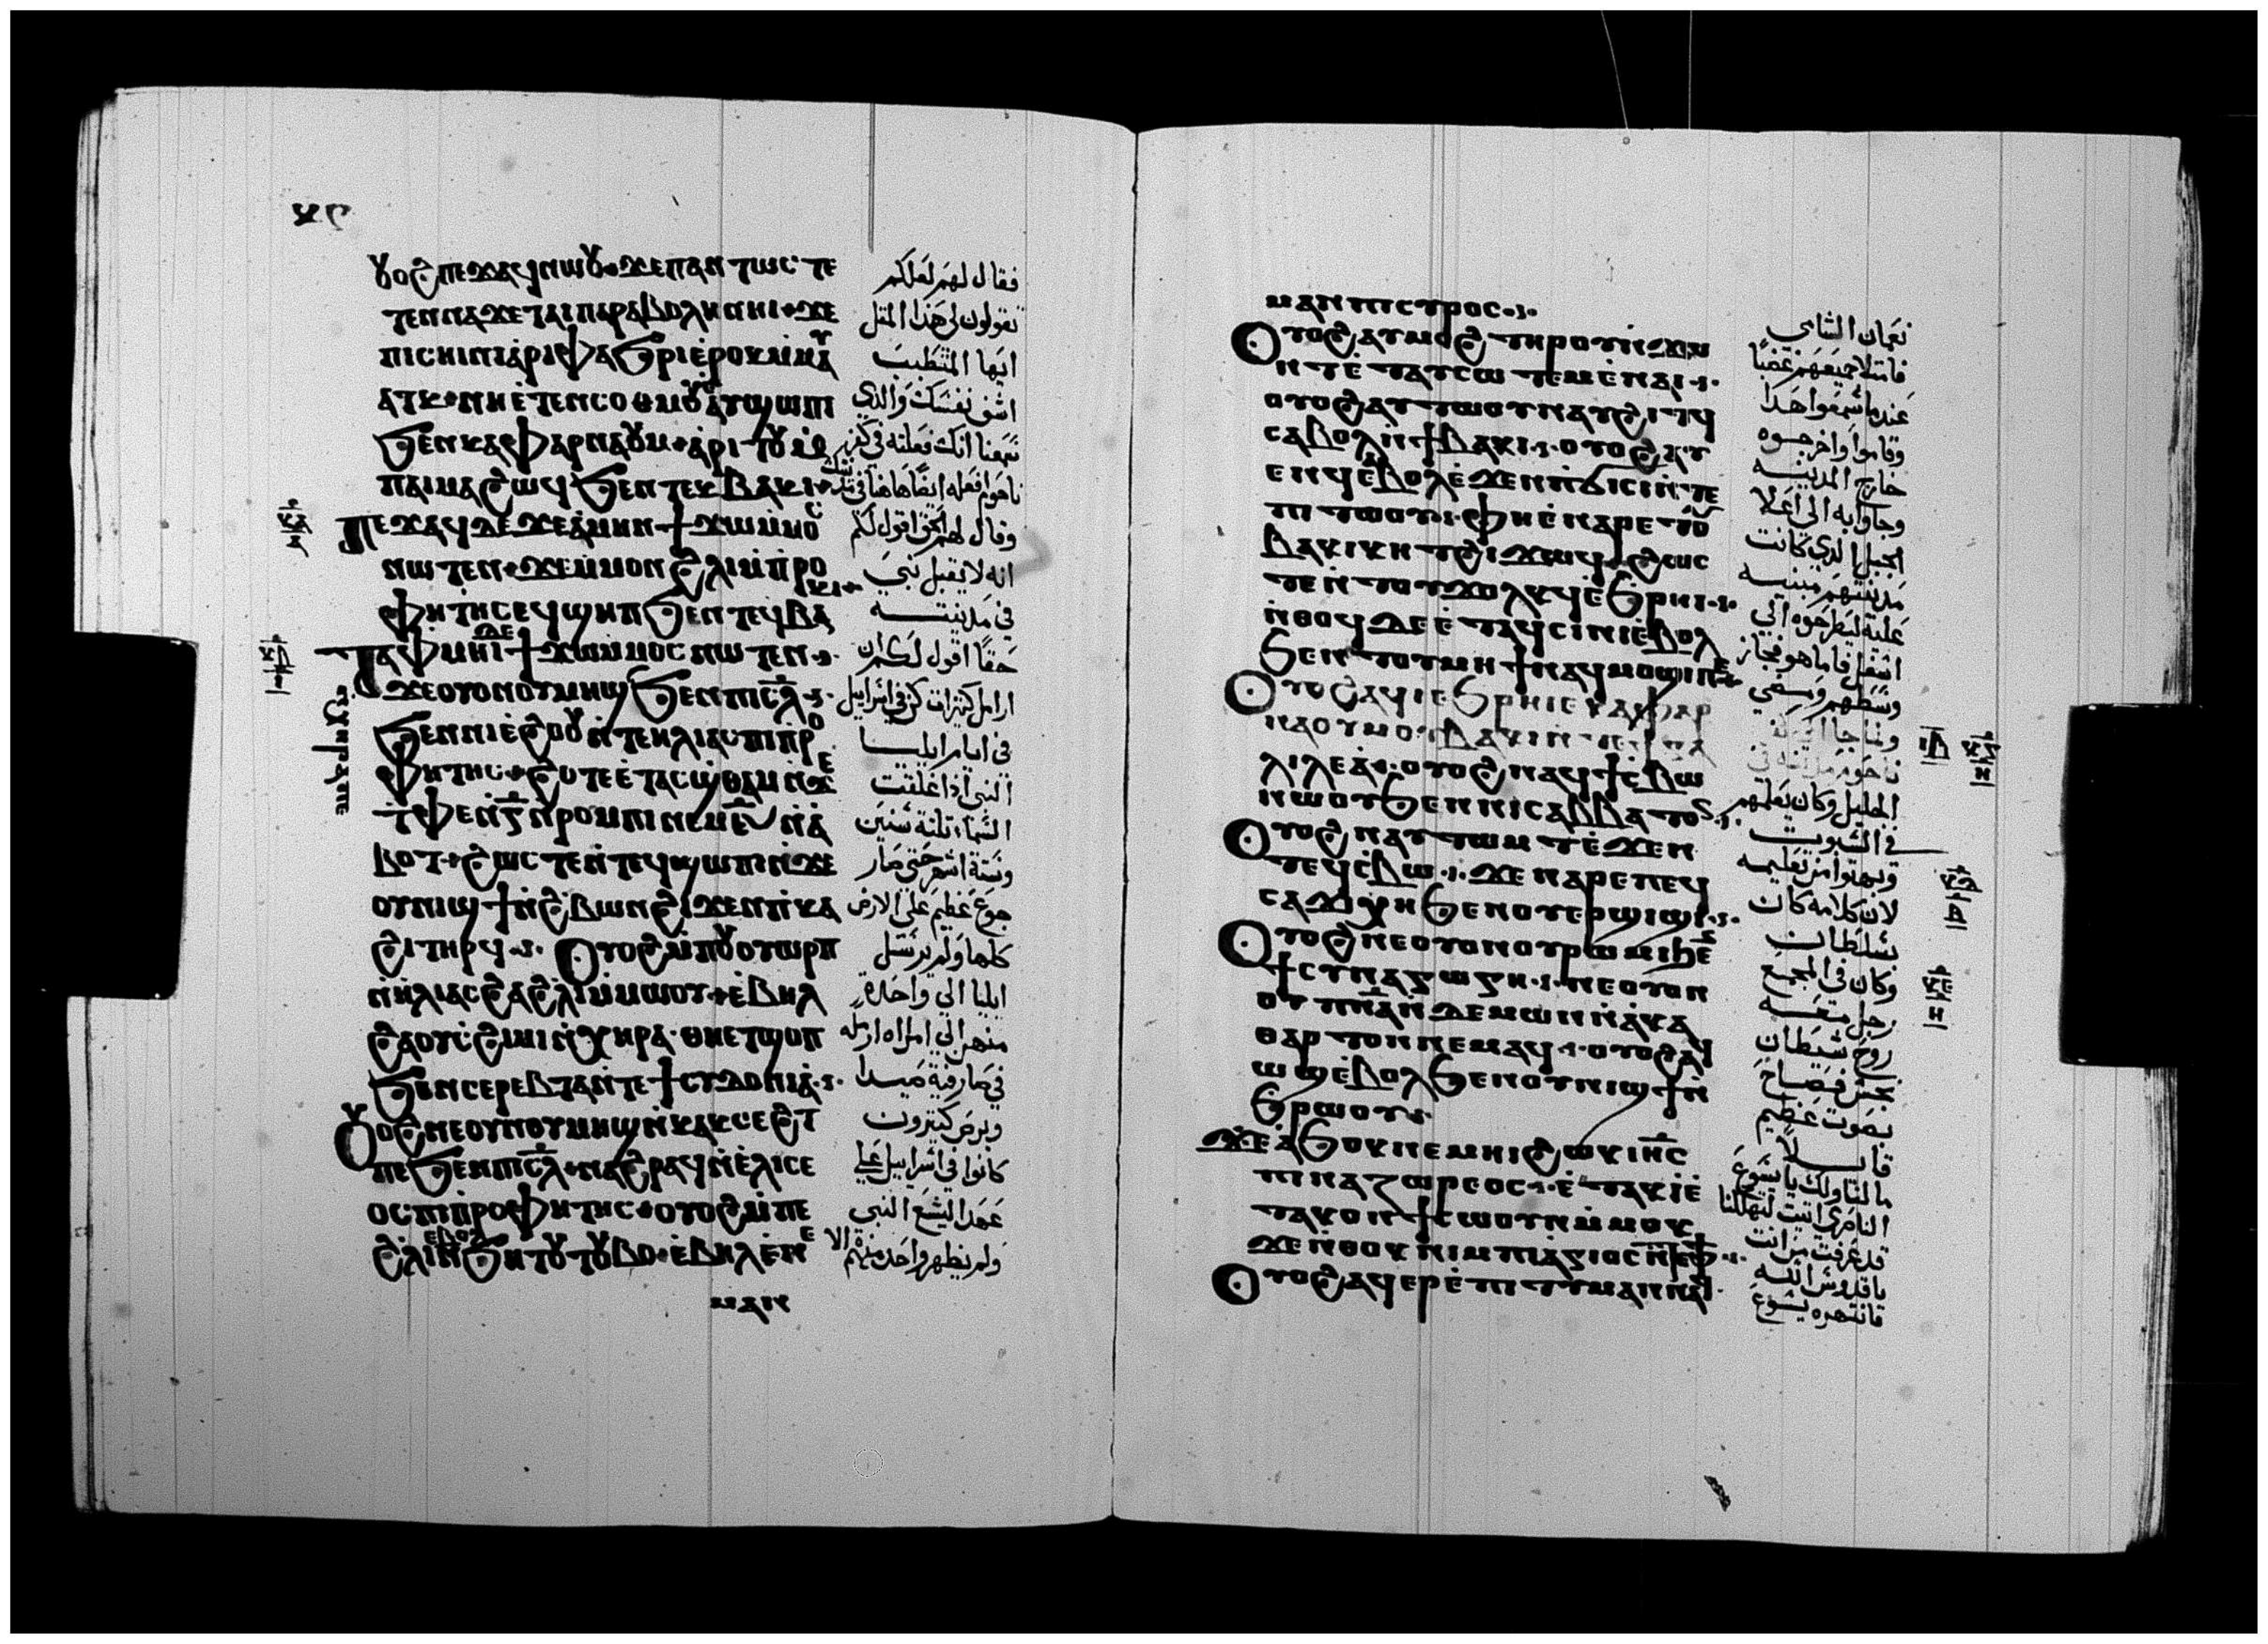 ⲟⲩⲟϩ ⲡⲉϫⲁϥ ⲛⲱⲟⲩ ϫⲉ ⲡⲁⲛⲧⲱⲥ ⲧⲉ
ⲧⲉⲛⲛⲁϫⲉ ⲧⲁⲓⲡⲁⲣⲁⲃⲟⲗⲏ ⲛⲏⲓ ϫⲉ
ⲡⲓⲥⲏⲓⲛⲓ ⲁⲣⲓⲫⲁϧⲣⲓ ⲉⲣⲟⲕ ⲙⲙⲁⲩ
ⲁⲧⲕ ⲛⲏ ⲉⲧⲉⲛⲥⲟⲑⲙⲟⲩ ⲁⲩϣⲱⲡⲓ
ϧⲉⲛ ⲕⲁⲫⲁⲣⲛⲁⲟⲩⲙ ⲁⲣⲓⲧⲟⲩ
ⲡⲁⲓⲙⲁ ϩⲱϥ ϧⲉⲛ ⲧⲉⲕⲃⲁⲕⲓ
ⲡⲉϫⲁϥ ⲇⲉ ϫⲉ ⲁⲙⲏⲛ ϯϫⲱ ⲙⲙⲟⲥ
ⲛⲱⲧⲉⲛ ϫⲉ ⲙⲙⲟⲛ ϩⲗⲓ ⲙⲡⲣⲟ
ⲫⲏⲧⲏⲥ ⲉϥϣⲏⲡ ϧⲉⲛ ⲧⲉϥⲃⲁⲕⲓ
ⲧⲁⲫⲙⲏⲓ ⲇⲉ ϯϫⲱ ⲙⲙⲟⲥ ⲛⲱⲧⲉⲛ
ϫⲉ ⲟⲩⲟⲛ ⲟⲩⲙⲏϣ ϧⲉⲛ ⲡⲓⲥⲗ
ϧⲉⲛ ⲛⲓⲉϩⲟⲟⲩ ⲛⲧⲉ ⲏⲗⲓⲁⲥ ⲡⲓⲡⲣⲟ
ⲫⲏⲧⲏⲥ ϩⲟⲧⲉ ⲉⲧⲁⲥϣⲑⲁⲙ ⲛϫⲉ
ⲧⲫⲉ ⲛⲅ ⲛⲣⲟⲙⲡⲓ ⲛⲉⲙ ⲛⲁ
ⲃⲟⲧ ϩⲱⲥⲧⲉ ⲛⲧⲉϥϣⲱⲡⲓ ⲛϫⲉ
ⲟⲩⲛⲓϣϯ ⲛϩⲃⲱⲛ ϩⲓϫⲉⲛ ⲡⲕⲁ
ϩⲓ ⲧⲏⲣϥ ⲟⲩⲟϩ ⲙⲡⲟⲩⲟⲩⲱⲣⲡ
ⲛⲏⲗⲓⲁⲥ ϩⲁ ϩⲗⲓ ⲙⲙⲱⲟⲩ ⲉⲃⲏⲗ
ϩⲁ ⲟⲩⲥϩⲓⲙⲓ ⲛⲭⲏⲣⲁ ⲑⲏⲉⲧϣⲟⲡ
ϧⲉⲛ ⲥⲉⲣⲉⲡⲧⲁ ⲛⲧⲉ ϯⲥⲩⲇⲟⲛⲓⲁ
ⲟⲩⲟϩ ⲛⲉ ⲟⲩⲟⲛ ⲟⲩⲙⲏϣ ⲛⲕⲁⲕⲥⲉϩⲧ
ⲡⲉ ϧⲉⲛ ⲡⲓⲥⲗ ⲛⲁϩⲣⲁϥ ⲛⲉⲗⲓⲥⲉ
ⲟⲥ ⲡⲓⲡⲣⲟⲫⲏⲧⲏⲥ ⲟⲩⲟϩ ⲙⲡⲉ
ϩⲗⲓ ⲉⲃⲟⲗ ⲛϧⲏⲧⲟⲩ ⲧⲟⲩⲃⲟ ⲉⲃⲏⲗ ⲉⲛⲉ
ⲙⲁⲛ
فقال لهم لعلكم
تقولون لي هذا المثل
ايها المتطبب
اشف نفسك والذي
سمعنا انك فعلته في كفر
ناحوم افعله ايضا هاهنا في مدينتك
وقال لهم الحق اقول لكم
انه لا يقبل نبي
في مدينته
حقا اقول لكم ان
ارامل كثيرات كن في اسرايل
في ايام ايليا
النبي اذا غلقت
السماء ثلثة سنين
وستة اشهر حتى صار
جوع عظيم على الارض
كلها ولم يرسل
ايليا الي واحدة
منهن الي امراه ارمله
في صارفية صيدا
وبرص كثيرون
كانوا في اسراييل علي
عهد اليشع النبي
ولم يطهر واحد منهم الا
ⲙⲁⲛ ⲡⲓⲥⲩⲣⲟⲥ
ⲟⲩⲟϩ ⲁⲩⲙⲟϩ ⲧⲏⲣⲟⲩ ⲛϫⲱ
ⲛⲧ ⲉⲧⲁⲩⲥⲱⲧⲉⲙ ⲉⲛⲁⲓ
ⲟⲩⲟϩ ⲁⲩⲧⲱⲟⲩⲛ ⲁⲩϩⲓⲧϥ
ⲥⲁⲃⲟⲗ ⲛϯⲃⲁⲕⲓ ⲟⲩⲟϩ ⲁⲩ
ⲉⲛϥ ⲉⲃⲟⲗ ⲉϫⲉⲛ ⲡϭⲓⲥⲓ ⲛⲧⲉ
ⲡⲓⲧⲱⲟⲩ ⲫⲏ ⲉⲛⲁⲣⲉ ⲧⲟⲩ
ⲃⲁⲕⲓ ⲕⲏⲧ ϩⲓϫⲱϥ ϩⲱⲥ
ⲧⲉ ⲛⲧⲟⲩϫⲟⲗⲕϥ ⲉϧⲣⲏⲓ
ⲛⲑⲟϥ ⲇⲉ ⲉⲧⲁϥⲥⲓⲛⲓ ⲉⲃⲟⲗ
ϧⲉⲛ ⲧⲟⲩⲙⲏϯ ⲛⲁϥⲙⲟϣⲓ ⲡⲉ
ⲟⲩⲟϩ ⲁϥⲓ ⲉϧⲣⲏⲓ ⲉⲕⲁⲫⲁⲣ
ⲛⲁⲟⲩⲙ ⲟⲩⲃⲁⲕⲓ ⲛⲧⲉ ϯⲅⲁ
ⲗⲓⲗⲉⲁ ⲟⲩⲟϩ ⲛⲁϥϯⲥⲃⲱ
ⲛⲱⲟⲩ ϧⲉⲛ ⲛⲓⲥⲁⲃⲃⲁⲧⲟⲛ
ⲟⲩⲟϩ ⲛⲁⲩⲧⲱⲙⲧ ⲉϫⲉⲛ
ⲧⲉϥⲥⲃⲱ ϫⲉ ⲛⲁⲣⲉ ⲡⲉϥ
ⲥⲁϫⲓ ⲭⲏ ϧⲉⲛ ⲟⲩⲉⲣϣⲓϣⲓ
ⲟⲩⲟϩ ⲛⲉ ⲟⲩⲟⲛ ⲟⲩⲣⲱⲙⲓ ϧⲉⲛ
ϯⲥⲩⲛⲁⲅⲱⲅⲏ ⲛⲉ ⲟⲩⲟⲛ
ⲟⲩⲡⲛⲁ ⲛⲇⲉⲙⲱⲛ ⲛⲁⲕⲁ
ⲑⲁⲣⲧⲟⲛ ⲛⲉⲙⲁϥ ⲟⲩⲟϩ ⲁϥ
ⲱϣ ⲉⲃⲟⲗ ϧⲉⲛ ⲟⲩⲛⲓϣϯ ⲛ
ϧⲣⲱⲟⲩ
ϫⲉ ⲁϧⲟⲕ ⲛⲉⲙⲏⲓ ϩⲱⲕ ⲓⲏⲥ
ⲡⲓⲛⲁⲍⲱⲣⲉⲟⲥ ⲉⲧⲁⲕⲓ ⲉ
ⲧⲁⲕⲟⲛ ϯⲥⲱⲟⲩⲛ ⲙⲙⲟⲕ
ϫⲉ ⲛⲑⲟⲕ ⲛⲓⲙ ⲡⲓⲁⲅⲓⲟⲥ ⲛⲧⲉ ⲫϯ
ⲟⲩⲟϩ ⲁϥⲉⲣⲉⲡⲓⲧⲓⲙⲁⲛ ⲛⲁϥ
نعمان الشامي
فامتلا جميعهم غضبا
عندما سمعوا هذا
وقاموا واخرجوه
خارج المدينه
وجاوا به الي اعلا
الجبل الذي كانت
مدينتهم مبنيه
عليه ليطرحوه الي
اسفل فاما هو فجاز
وسطهم ومضي
الجليل وكان يعلمهم
في السبوت
وبهتوا من تعليمه
لان كلامه كان
بسلطان
وكان في المجمع
رجل معه
روح شيطان
نجس فصاح
بصوت عظيم
قايلا
ما لنا ولك يا يسوع
الناصري اتيت لتهلكنا
قد عرفت من انت
يا قدوس الله
فانتهره يسوع